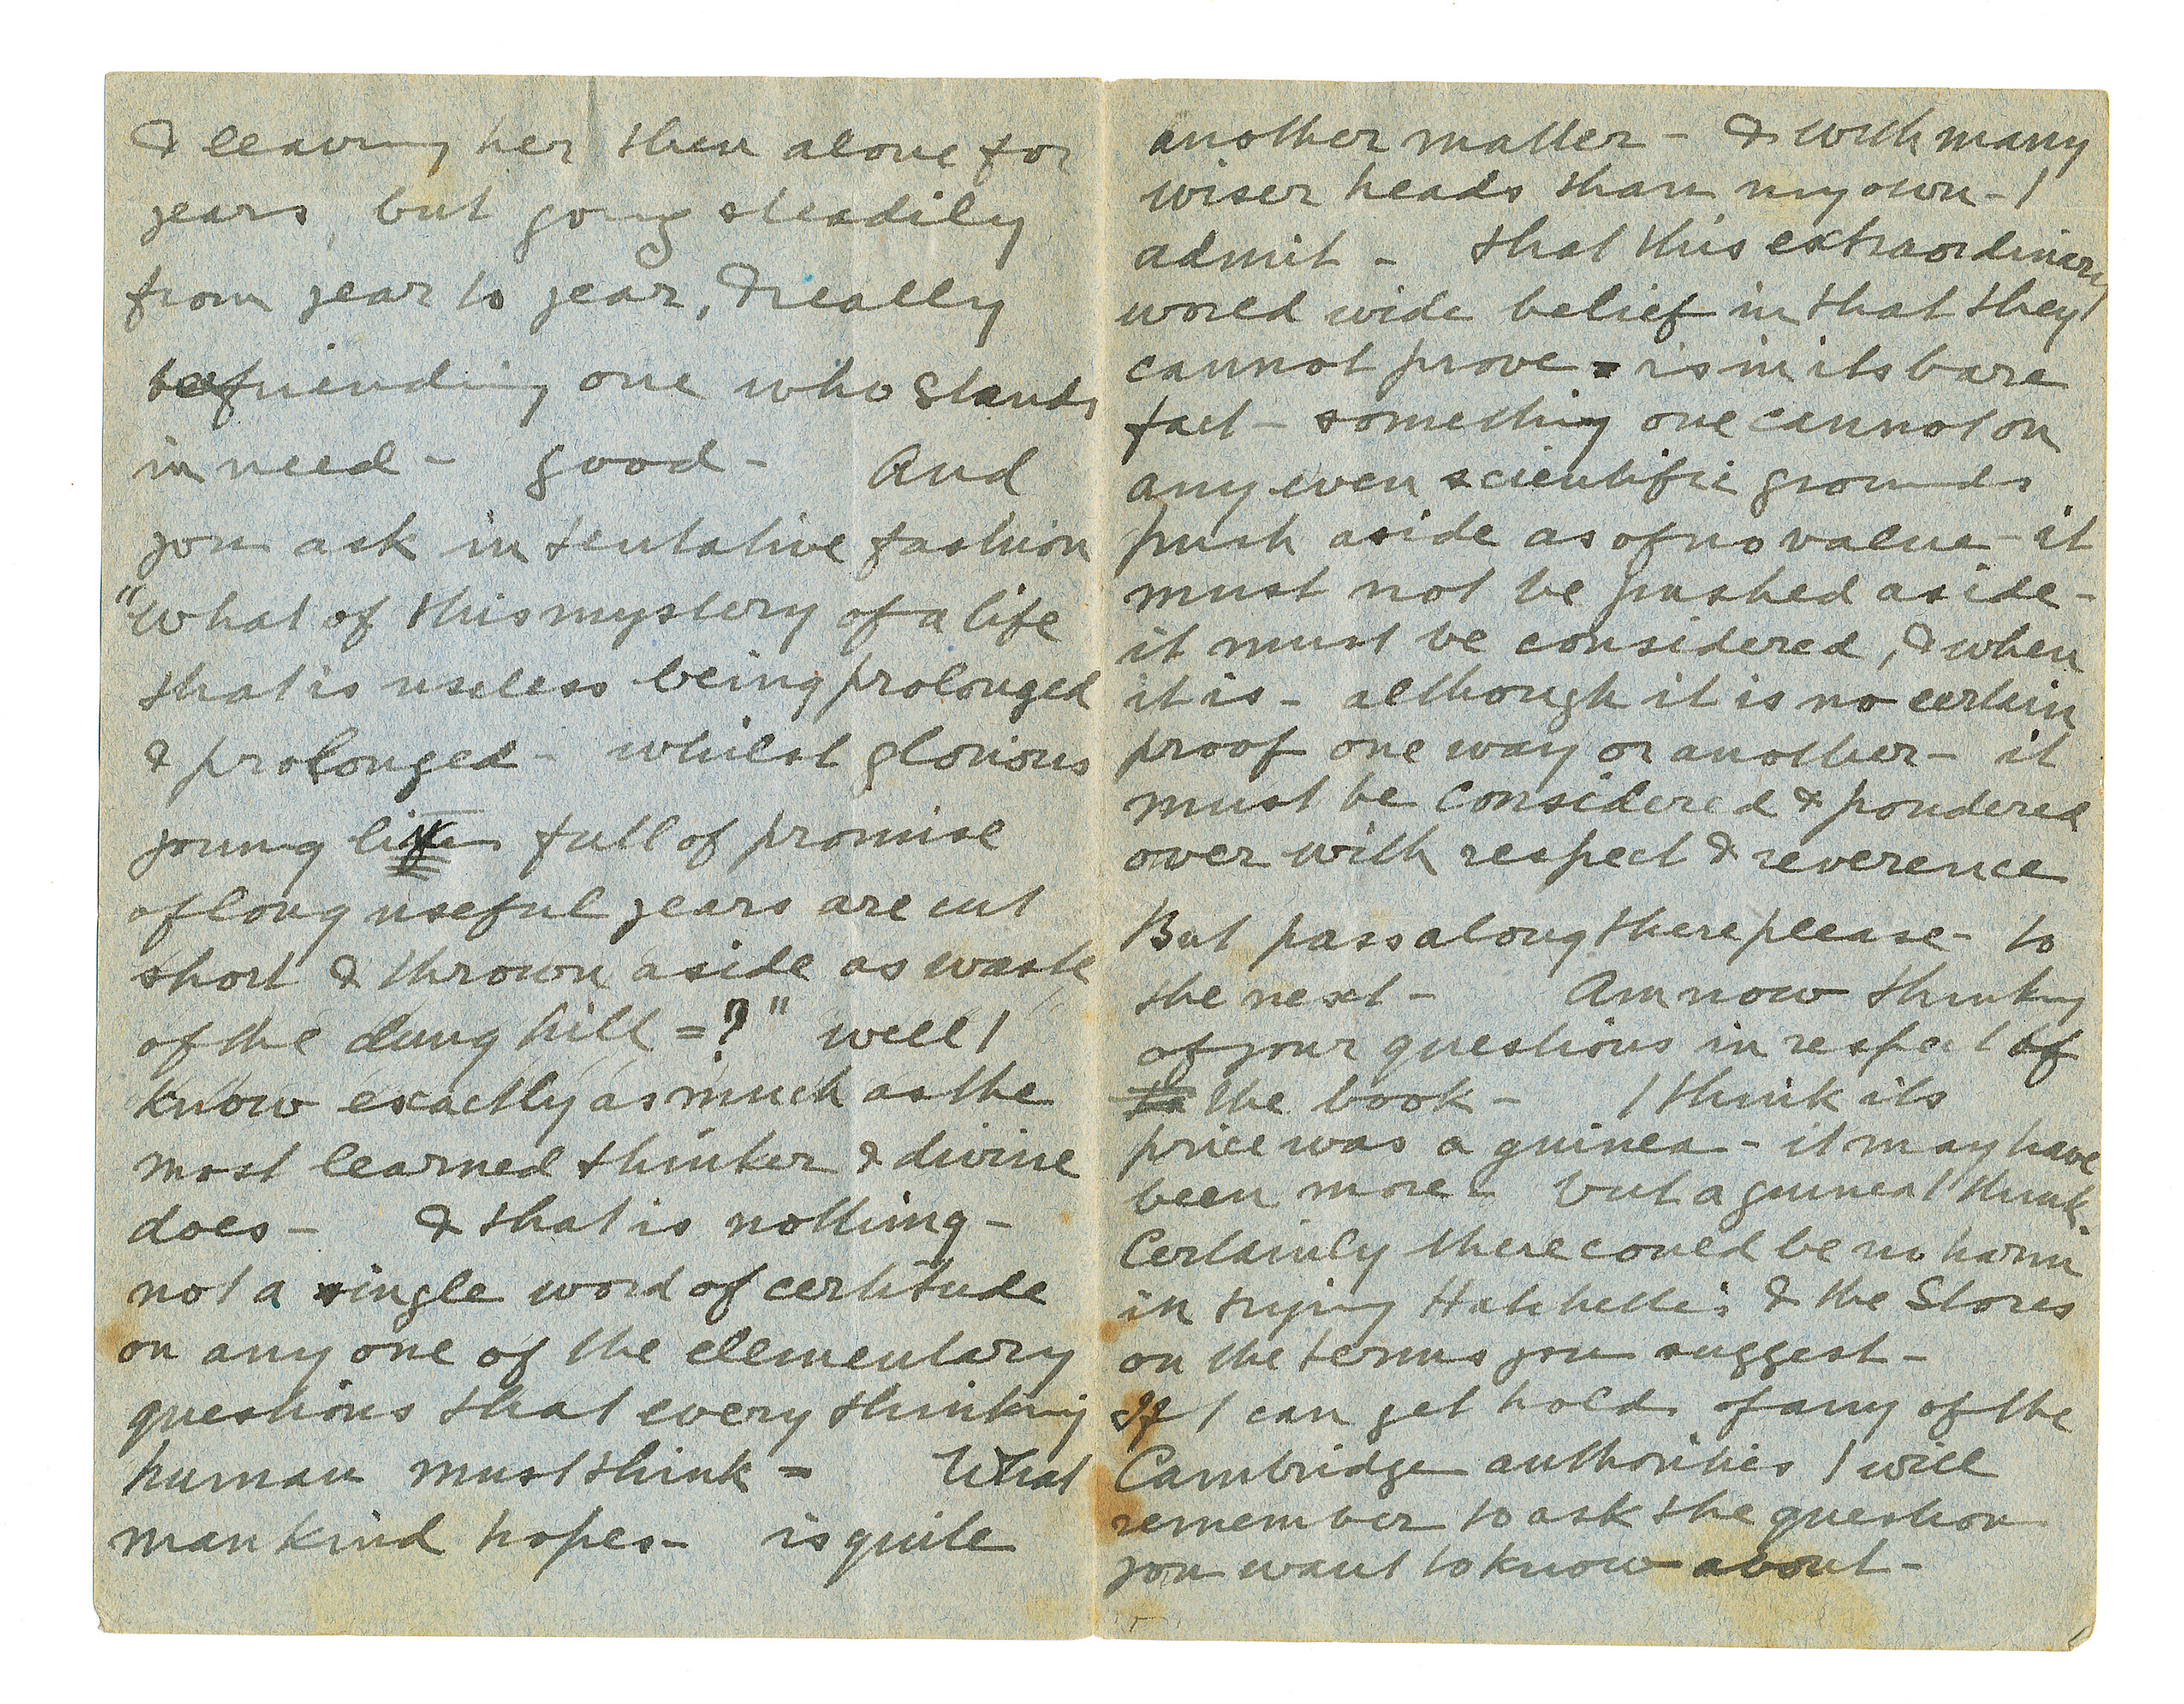 & leaving her then alone for
years, but going steadily
from year to year, & really
befriending one who stands
in need - good - And
you ask in tentative fashion
"What of this mystery of a life
that is useless being prolonged
& prolonged - whilst glorious
young lives full of promise
of long useful years are cut
short & thrown aside as waste
of the dung hill = ?" well I
know exactly as much as the
most learned thinker & divine
does - & that is nothing -
not a single word of certitude
on any one of the elementary
questions that every thinking
human must think = What
mankind hopes - is quite
another matter - & with many
wiser heads than my own - I
admit - that this extraordinary
world wide belief in that they
cannot prove = is in its bare
fact - something one cannot on
any even scientific grounds
push aside as of no value - it
must not be pushed aside -
it must be considered, & when
it is - although it is no certain
proof one way or another - it
must be considered & pondered
over with respect & reverence
But pass along there please - to
the next - Am now thinking
of your questions in respect of
the book - I think its
price was a guinea - it may have
been more - but a guinea I think.
Certainly there could be no harm
in trying Hatchett's & the Stores
on the terms you suggest -
If I can get hold of any of the
Cambridge authorities I will
remember to ask the question
you want to know about -